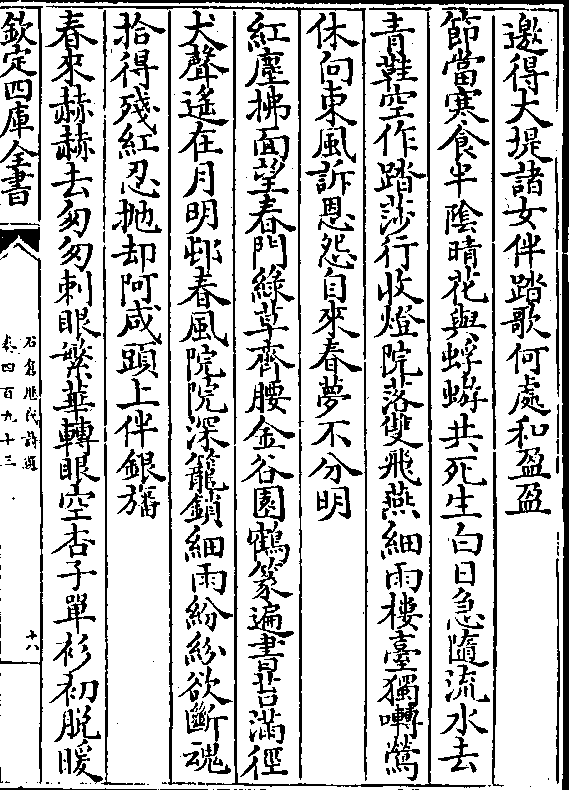 邀得大堤諸女伴踏歌何處和盈盈
節當寒食半陰晴花與蜉蝣共死生白日急隨流水去
青鞋空作踏莎行收燈院落雙飛燕細雨樓臺獨囀鶯
休向東風訴恩怨自來春夢不分明
紅塵拂面望春門綠草齊腰金谷園鶴篆遍書苔滿徑
犬聲遙在月明邨春風院院深籠鎖細雨紛紛欲斷魂
拾得殘紅忍抛却阿咸頭上伴銀旛
春來赫赫去匆匆刺眼繁華轉眼空杏子單衫初脱暖
欽定四庫全書
石倉歷代詩選
卷四百九十三
十八